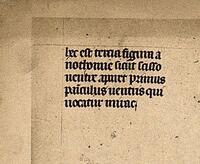 hec est tercia figura a
nothomie sicut scisso
uentre apparet primus
paniculus uentris qui
uocatur mirac;